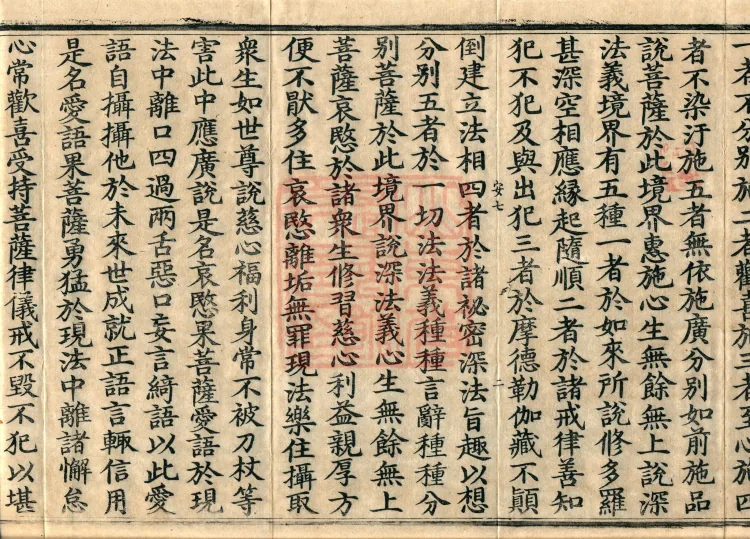 者不分別施二者歡喜施三者至心施四
者不染汙施五者無依施廣分別如前施品
說菩薩於此境界惠施心生無餘無上說深
法義境界有五種一者於如來所說修多羅
甚深空相應緣起隨順二者於諸戒律善知
犯不犯及與出犯三者於摩德勒伽藏不顛
安七
二
倒建立法相四者於諸祕密深法旨趣以想
分別五者於一切法法義種種言辭種種分
別菩薩於此境界說深法義心生無餘無上
菩薩哀愍於諸衆生修習慈心利益親厚方
便不猒多住哀愍離垢無罪現法樂住攝取
衆生如世尊說慈心福利身常不被刀杖等
害此中應廣說是名哀愍果菩薩愛語於現
法中離口四過兩舌惡口妄言綺語以此愛
語自攝攝他於未來世成就正語言輙信用
是名愛語果菩薩勇猛於現法中離諸懈怠
心常歡喜受持菩薩律儀戒不毀不犯以堪